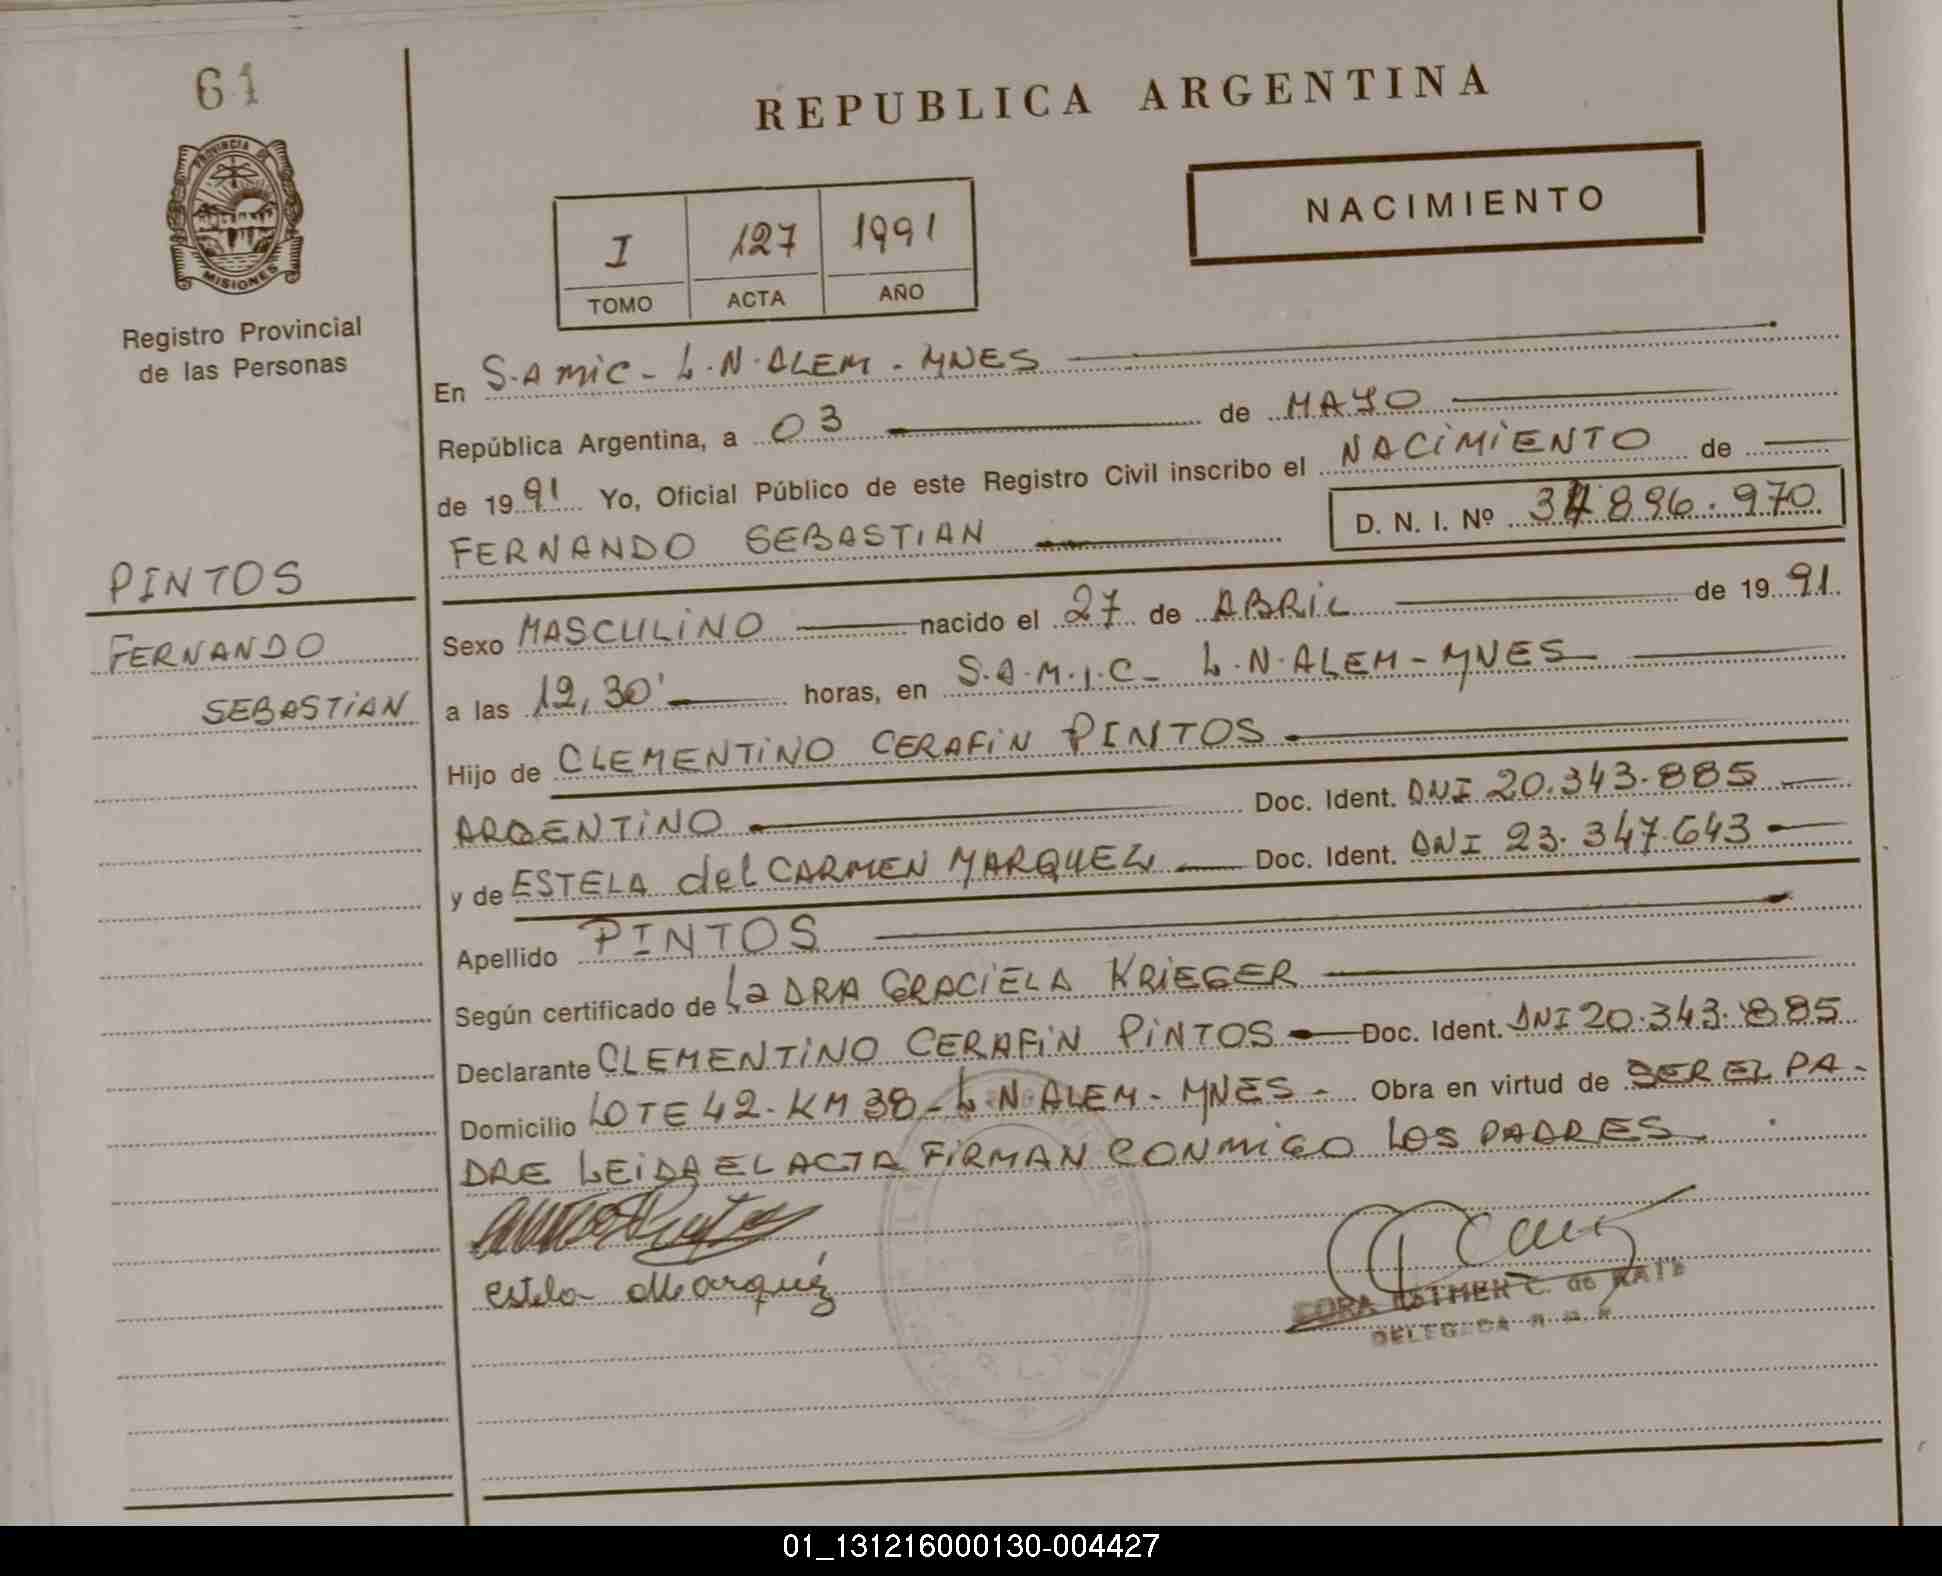 61
PROVINCIA DE
MISIONES
Registro Provincial
de las Personas
REPUBLICA ARGENTINA
NACIMIENTO
I 127 1991
TOMO ACTA AÑO
En S.AMIC - L.N.ALEM - MNES
República Argentina, a 03 de MAYO
de 1991 Yo, Oficial Público de este Registro Civil inscribo el NACIMIENTO de
FERNANDO SEBASTIAN D. N. I. Nº 896.970
PINTOS
FERNANDO
SEBASTIAN
Sexo MASCULINO nacido el 27 de ABRIL de 1991.
a las 12,30' horas, en S.A.M.I.C - L.N.ALEM - MNES
Hijo de CLEMENTINO CERAFIN PINTOS
ARGENTINO Doc. Ident. DNI 20.343.885
y de ESTELA del CARMEN MARQUEZ Doc. Ident. DNI 23.347.643
Apellido PINTOS
Según certificado de La DRA GRACIELA KRIEGER
Declarante CLEMENTINO CERAFIN PINTOS Doc. Ident. DNI 20.343.885
Domicilio LOTE 42 - KM 38 - L.N.ALEM - MNES - Obra en virtud de SER EL PA-
DRE LEIDA EL ACTA FIRMAN CONMIGO LOS PADRES
Estela Marquéz
ESTHER C. de
DELEGADA
01_131216000130-004427